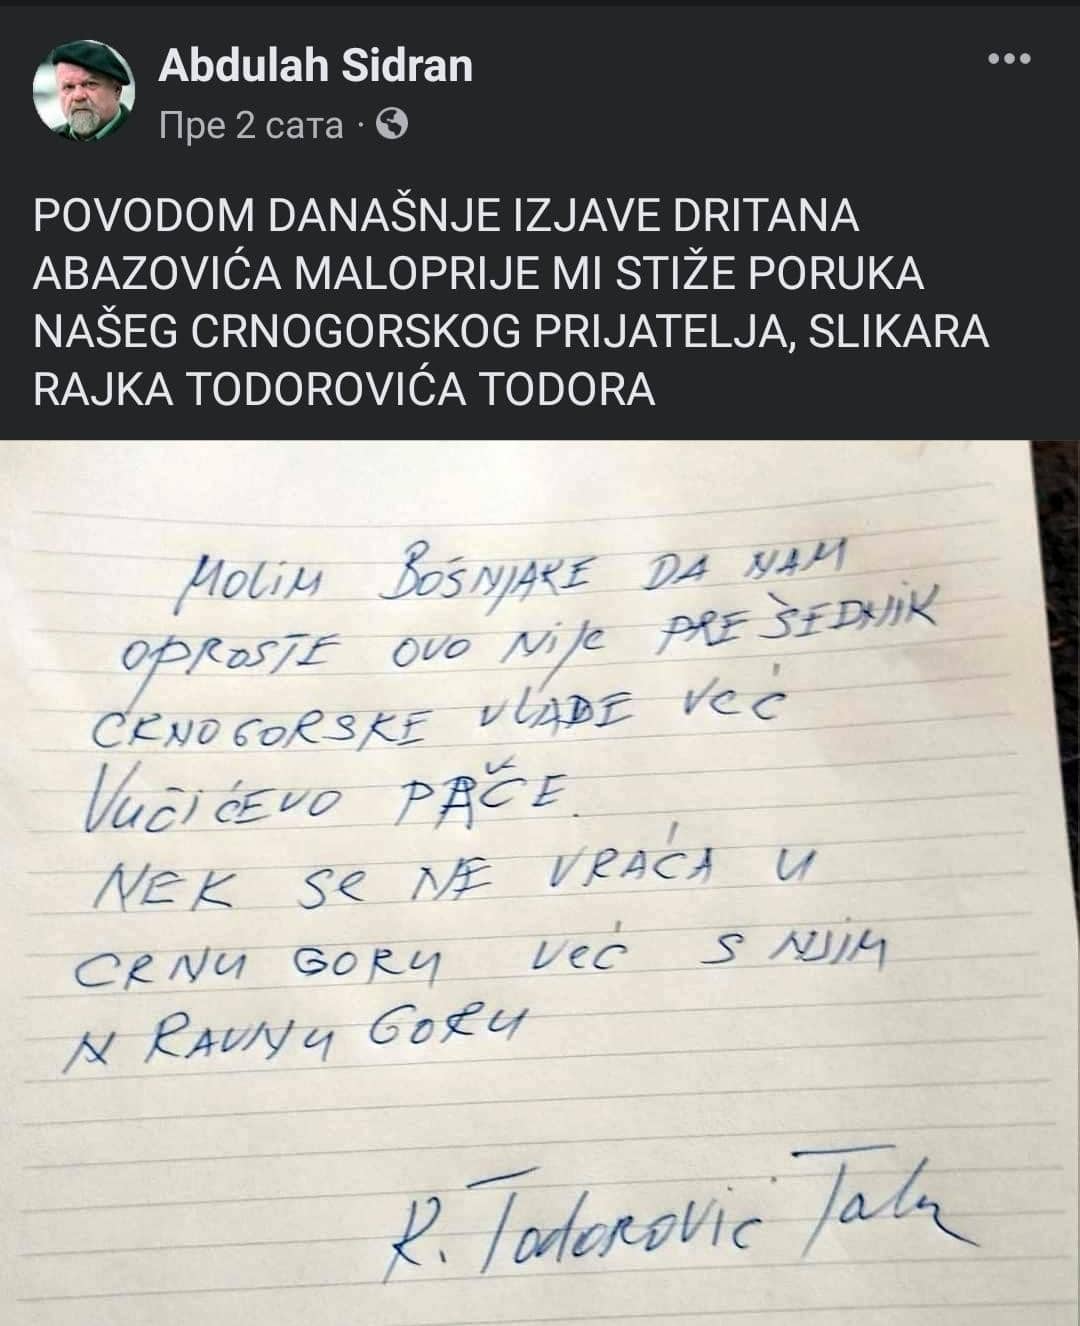 Abdulah Sidran
Пре 2 сата ·
POVODOM DANAŠNJE IZJAVE DRITANA
ABAZOVIĆA MALOPRIJE MI STIŽE PORUKA
NAŠEG CRNOGORSKOG PRIJATELJA, SLIKARA
RAJKA TODOROVIĆA TODORA
MOLIM BOŠNJAKE DA NAM
OPROSTE OVO NIJE PREŚEDNIK
CRNOGORSKE VLADE VEĆ
VUČIĆEVO PAČE.
NEK SE NE VRAĆA U
CRNU GORU VEĆ S NJIM
N RAVNU GORU
R. Todorović